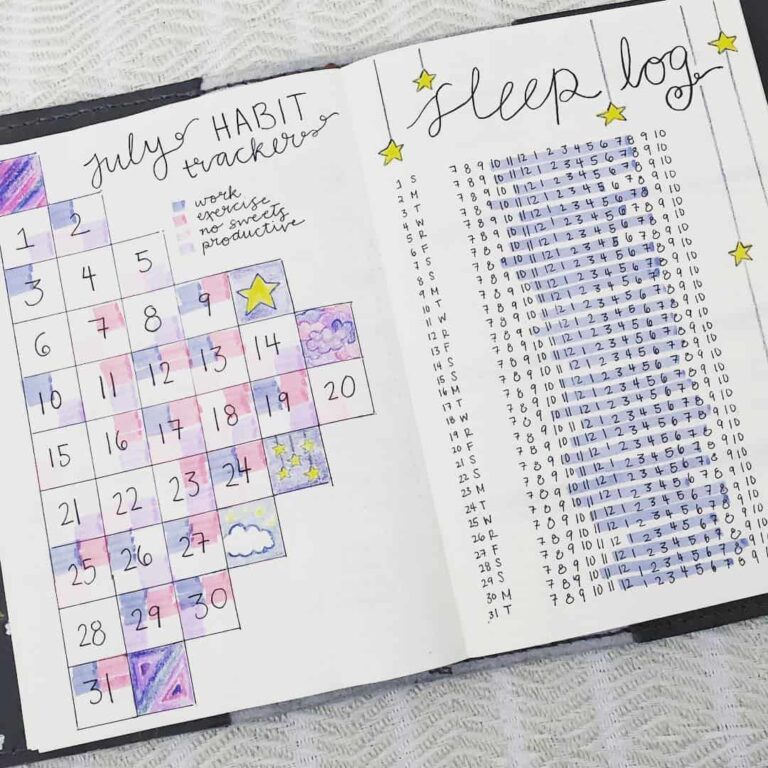 july HABIT
tracker
work
exercise
no sweets
productive
1 2
3 4 5
6 7 8 9
10 11 12 13 14
15 16 17 18 19 20
21 22 23 24
25 26 27
28 29 30
31
sleep log
1 S 7 8 9 10 11 12 1 2 3 4 5 6 7 8 9 10
2 M 7 8 9 10 11 12 1 2 3 4 5 6 7 8 9 10
3 T 7 8 9 10 11 12 1 2 3 4 5 6 7 8 9 10
4 W 7 8 9 10 11 12 1 2 3 4 5 6 7 8 9 10
5 R 7 8 9 10 11 12 1 2 3 4 5 6 7 8 9 10
6 F 7 8 9 10 11 12 1 2 3 4 5 6 7 8 9 10
7 S 7 8 9 10 11 12 1 2 3 4 5 6 7 8 9 10
8 S 7 8 9 10 11 12 1 2 3 4 5 6 7 8 9 10
9 M 7 8 9 10 11 12 1 2 3 4 5 6 7 8 9 10
10 T 7 8 9 10 11 12 1 2 3 4 5 6 7 8 9 10
11 W 7 8 9 10 11 12 1 2 3 4 5 6 7 8 9 10
12 R 7 8 9 10 11 12 1 2 3 4 5 6 7 8 9 10
13 F 7 8 9 10 11 12 1 2 3 4 5 6 7 8 9 10
14 S 7 8 9 10 11 12 1 2 3 4 5 6 7 8 9 10
15 S 7 8 9 10 11 12 1 2 3 4 5 6 7 8 9 10
16 M 7 8 9 10 11 12 1 2 3 4 5 6 7 8 9 10
17 T 7 8 9 10 11 12 1 2 3 4 5 6 7 8 9 10
18 W 7 8 9 10 11 12 1 2 3 4 5 6 7 8 9 10
19 R 7 8 9 10 11 12 1 2 3 4 5 6 7 8 9 10
20 F 7 8 9 10 11 12 1 2 3 4 5 6 7 8 9 10
21 S 7 8 9 10 11 12 1 2 3 4 5 6 7 8 9 10
22 S 7 8 9 10 11 12 1 2 3 4 5 6 7 8 9 10
23 M 7 8 9 10 11 12 1 2 3 4 5 6 7 8 9 10
24 T 7 8 9 10 11 12 1 2 3 4 5 6 7 8 9 10
25 W 7 8 9 10 11 12 1 2 3 4 5 6 7 8 9 10
26 R 7 8 9 10 11 12 1 2 3 4 5 6 7 8 9 10
27 F 7 8 9 10 11 12 1 2 3 4 5 6 7 8 9 10
28 S 7 8 9 10 11 12 1 2 3 4 5 6 7 8 9 10
29 S 7 8 9 10 11 12 1 2 3 4 5 6 7 8 9 10
30 M 7 8 9 10 11 12 1 2 3 4 5 6 7 8 9 10
31 T 7 8 9 10 11 12 1 2 3 4 5 6 7 8 9 10